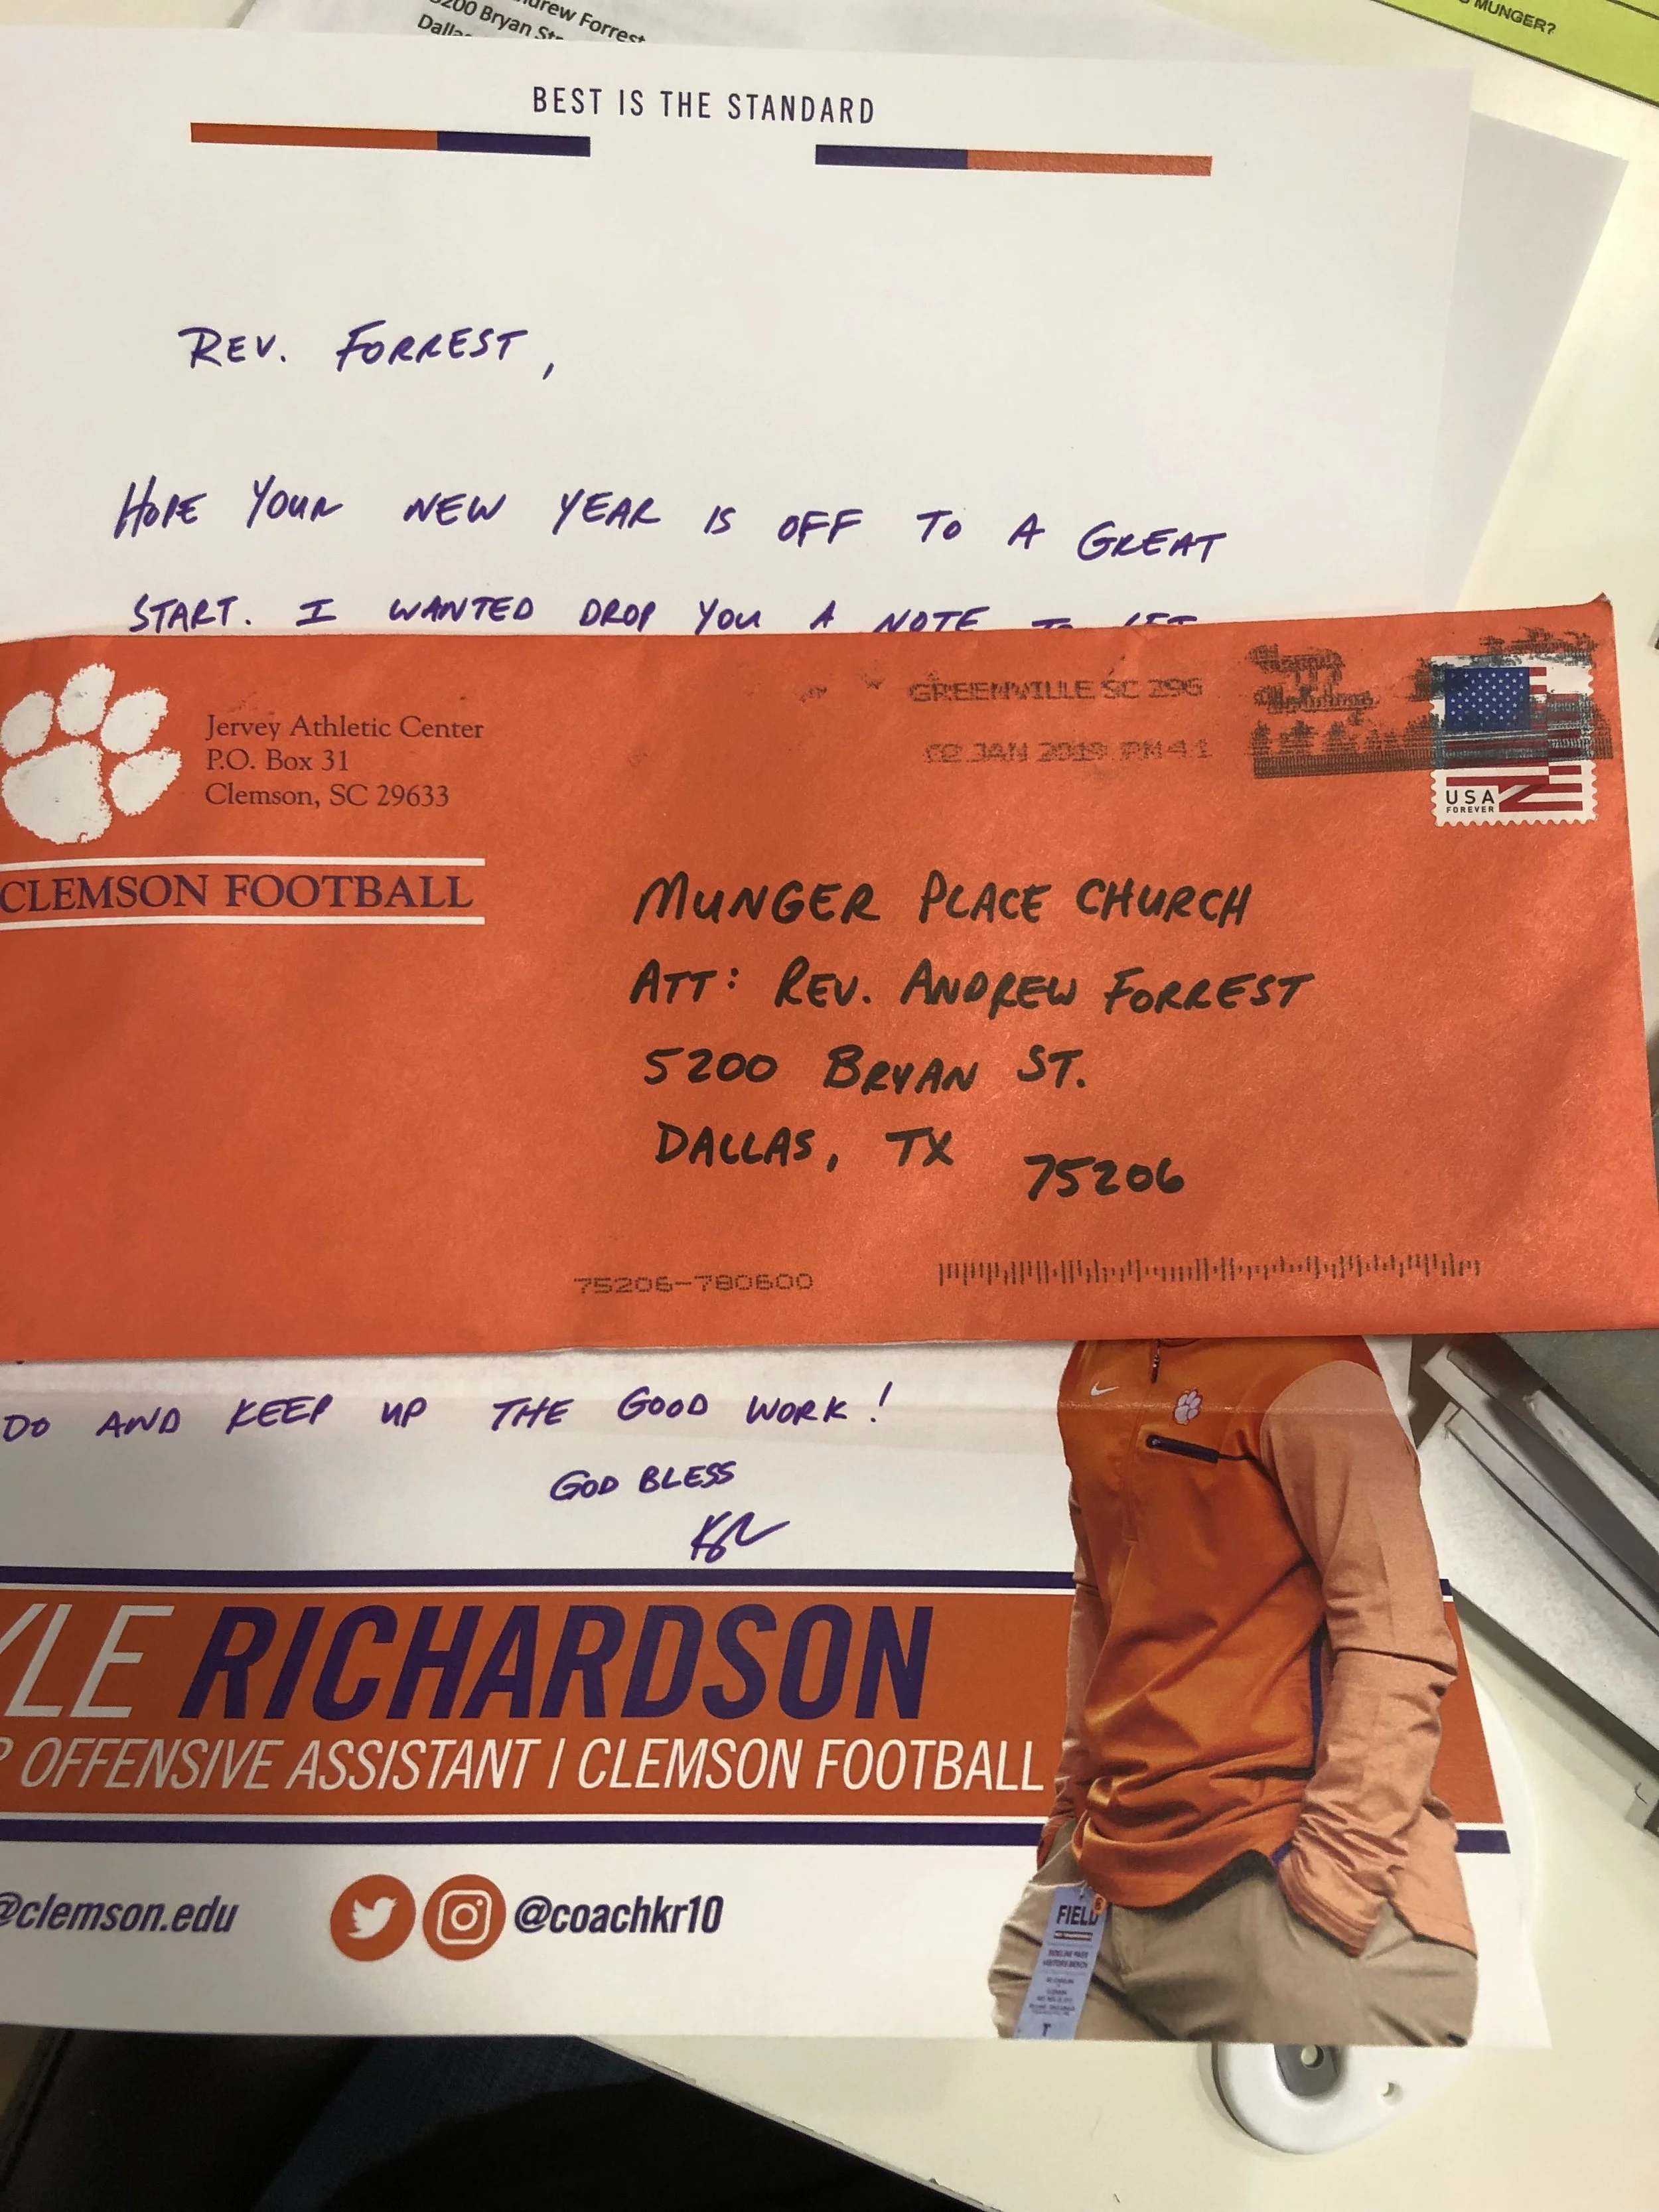 ndrew Forrest
5200 Bryan St
Dalla
MUNGER?
BEST IS THE STANDARD
REV. FORREST,
HOPE YOUR NEW YEAR IS OFF TO A GREAT
START. I WANTED DROP YOU A NOTE TO LET
Jervey Athletic Center
P.O. Box 31
Clemson, SC 29633
CLEMSON FOOTBALL
GREENVILLE SC 296
02 JAN 2019 PM 4 1
USA
FOREVER
MUNGER PLACE CHURCH
ATT: REV. ANDREW FORREST
5200 BRYAN ST.
DALLAS, TX 75206
75206-780600
DO AND KEEP UP THE GOOD WORK!
GOD BLESS
KR
YLE RICHARDSON
OFFENSIVE ASSISTANT | CLEMSON FOOTBALL
@clemson.edu
@coachkr10
FIELD